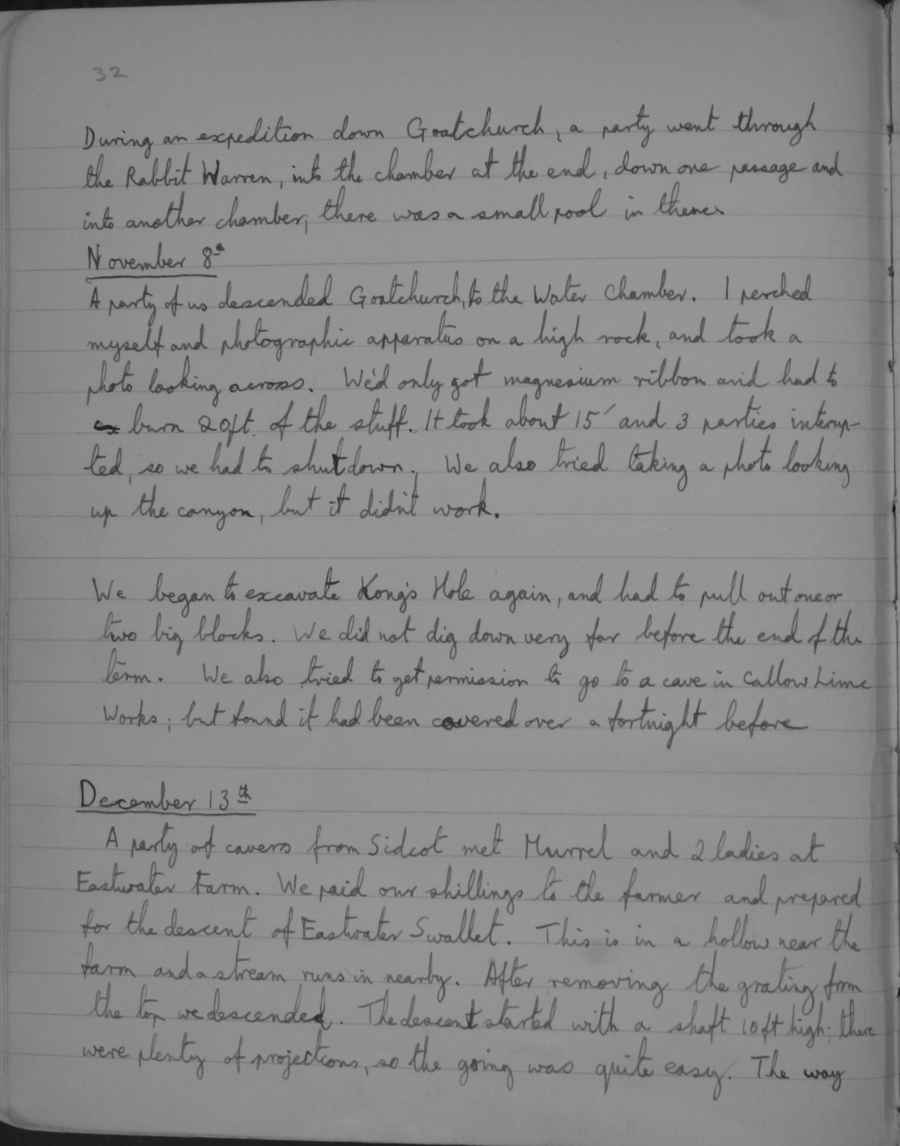 32
During an expedition down Goatchurch, a party went through
the Rabbit Warren, into the chamber at the end, down one passage and
into another chamber, there was a small pool in there.
November 8th
A party of us descended Goatchurch, to the Water Chamber. I perched
myself and photographic apparatus on a high rock, and took a
photo looking across. We'd only got magnesium ribbon and had to
burn 20ft. of the stuff. It took about 15' and 3 parties interup-
ted, so we had to shut down. We also tried taking a photo looking
up the canyon, but it didn't work.
We began to excavate Kong's Hole again, and had to pull out one or
two big blocks. We did not dig down very far before the end of the
term. We also tried to get permission to go to a cave in Callow Lime
Works; but found it had been covered over a fortnight before
December 13th
A party of cavers from Sidcot met Murrel and 2 ladies at
Eastwater Farm. We paid our shillings to the farmer and prepared
for the descent of Eastwater Swallet. This is in a hollow near the
farm and a stream runs in nearby. After removing the grating from
the top we descended. The descent started with a shaft 10ft high; there
were plenty of projections, so the going was quite easy. The way